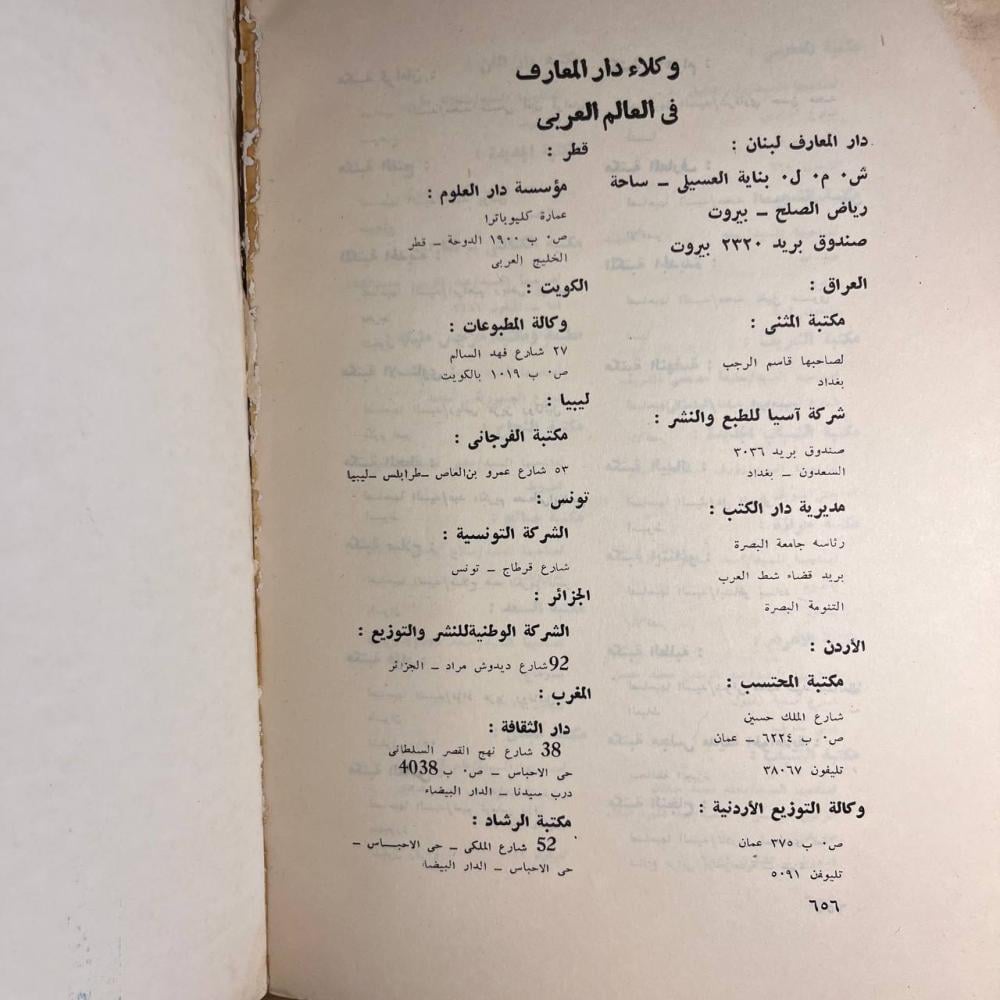 وكلاء دار المعارف
فى العالم العربى
دار المعارف لبنان :
ش٠ م٠ ل٠ بناية العسيلى ــ ساحة
رياض الصلح ــ بيروت
صندوق بريد ٢٣٢٠ بيروت
العراق :
مكتبة المثنى :
لصاحبها قاسم الرجب
بغداد
شركة آسيا للطبع والنشر :
صندوق بريد ٣٠٣٦
السعدون ــ بغداد
مديرية دار الكتب :
رئاسه جامعة البصرة
بريد قضاء شط العرب
التنومة البصرة
الأردن :
مكتبة المحتسب :
شارع الملك حسين
ص٠ ب ٦٢٢٤ ــ عمان
تليفون ٣٨٠٦٧
وكالة التوزيع الأردنية :
ص٠ ب ٣٧٥ عمان
تليوفن ٥٠٩١
٦٥٦
قطر :
مؤسسة دار العلوم :
عمارة كليوباترا
ص٠ ب ١٩٠٠ الدوحة ــ قطر
الخليج العربى
الكويت :
وكالة المطبوعات :
٢٧ شارع فهد السالم
ص٠ ب ١٠١٩ بالكويت
ليبيا :
مكتبة الفرجانى :
٥٣ شارع عمرو بن العاص ــ طرابلس ــ ليبيا
تونس :
الشركة التونسية :
شارع قرطاج ــ تونس
الجزائر :
الشركة الوطنية للنشر والتوزيع :
92 شارع ديدوش مراد ــ الجزائر
المغرب :
دار الثقافة :
38 شارع نهج القصر السلطانى
حى الاحباس ــ ص٠ ب 4038
درب سيدنا ــ الدار البيضاء
مكتبة الرشاد :
52 شارع الملكى ــ حى الاحباس ــ
حى الاحباس ــ الدار البيضاء